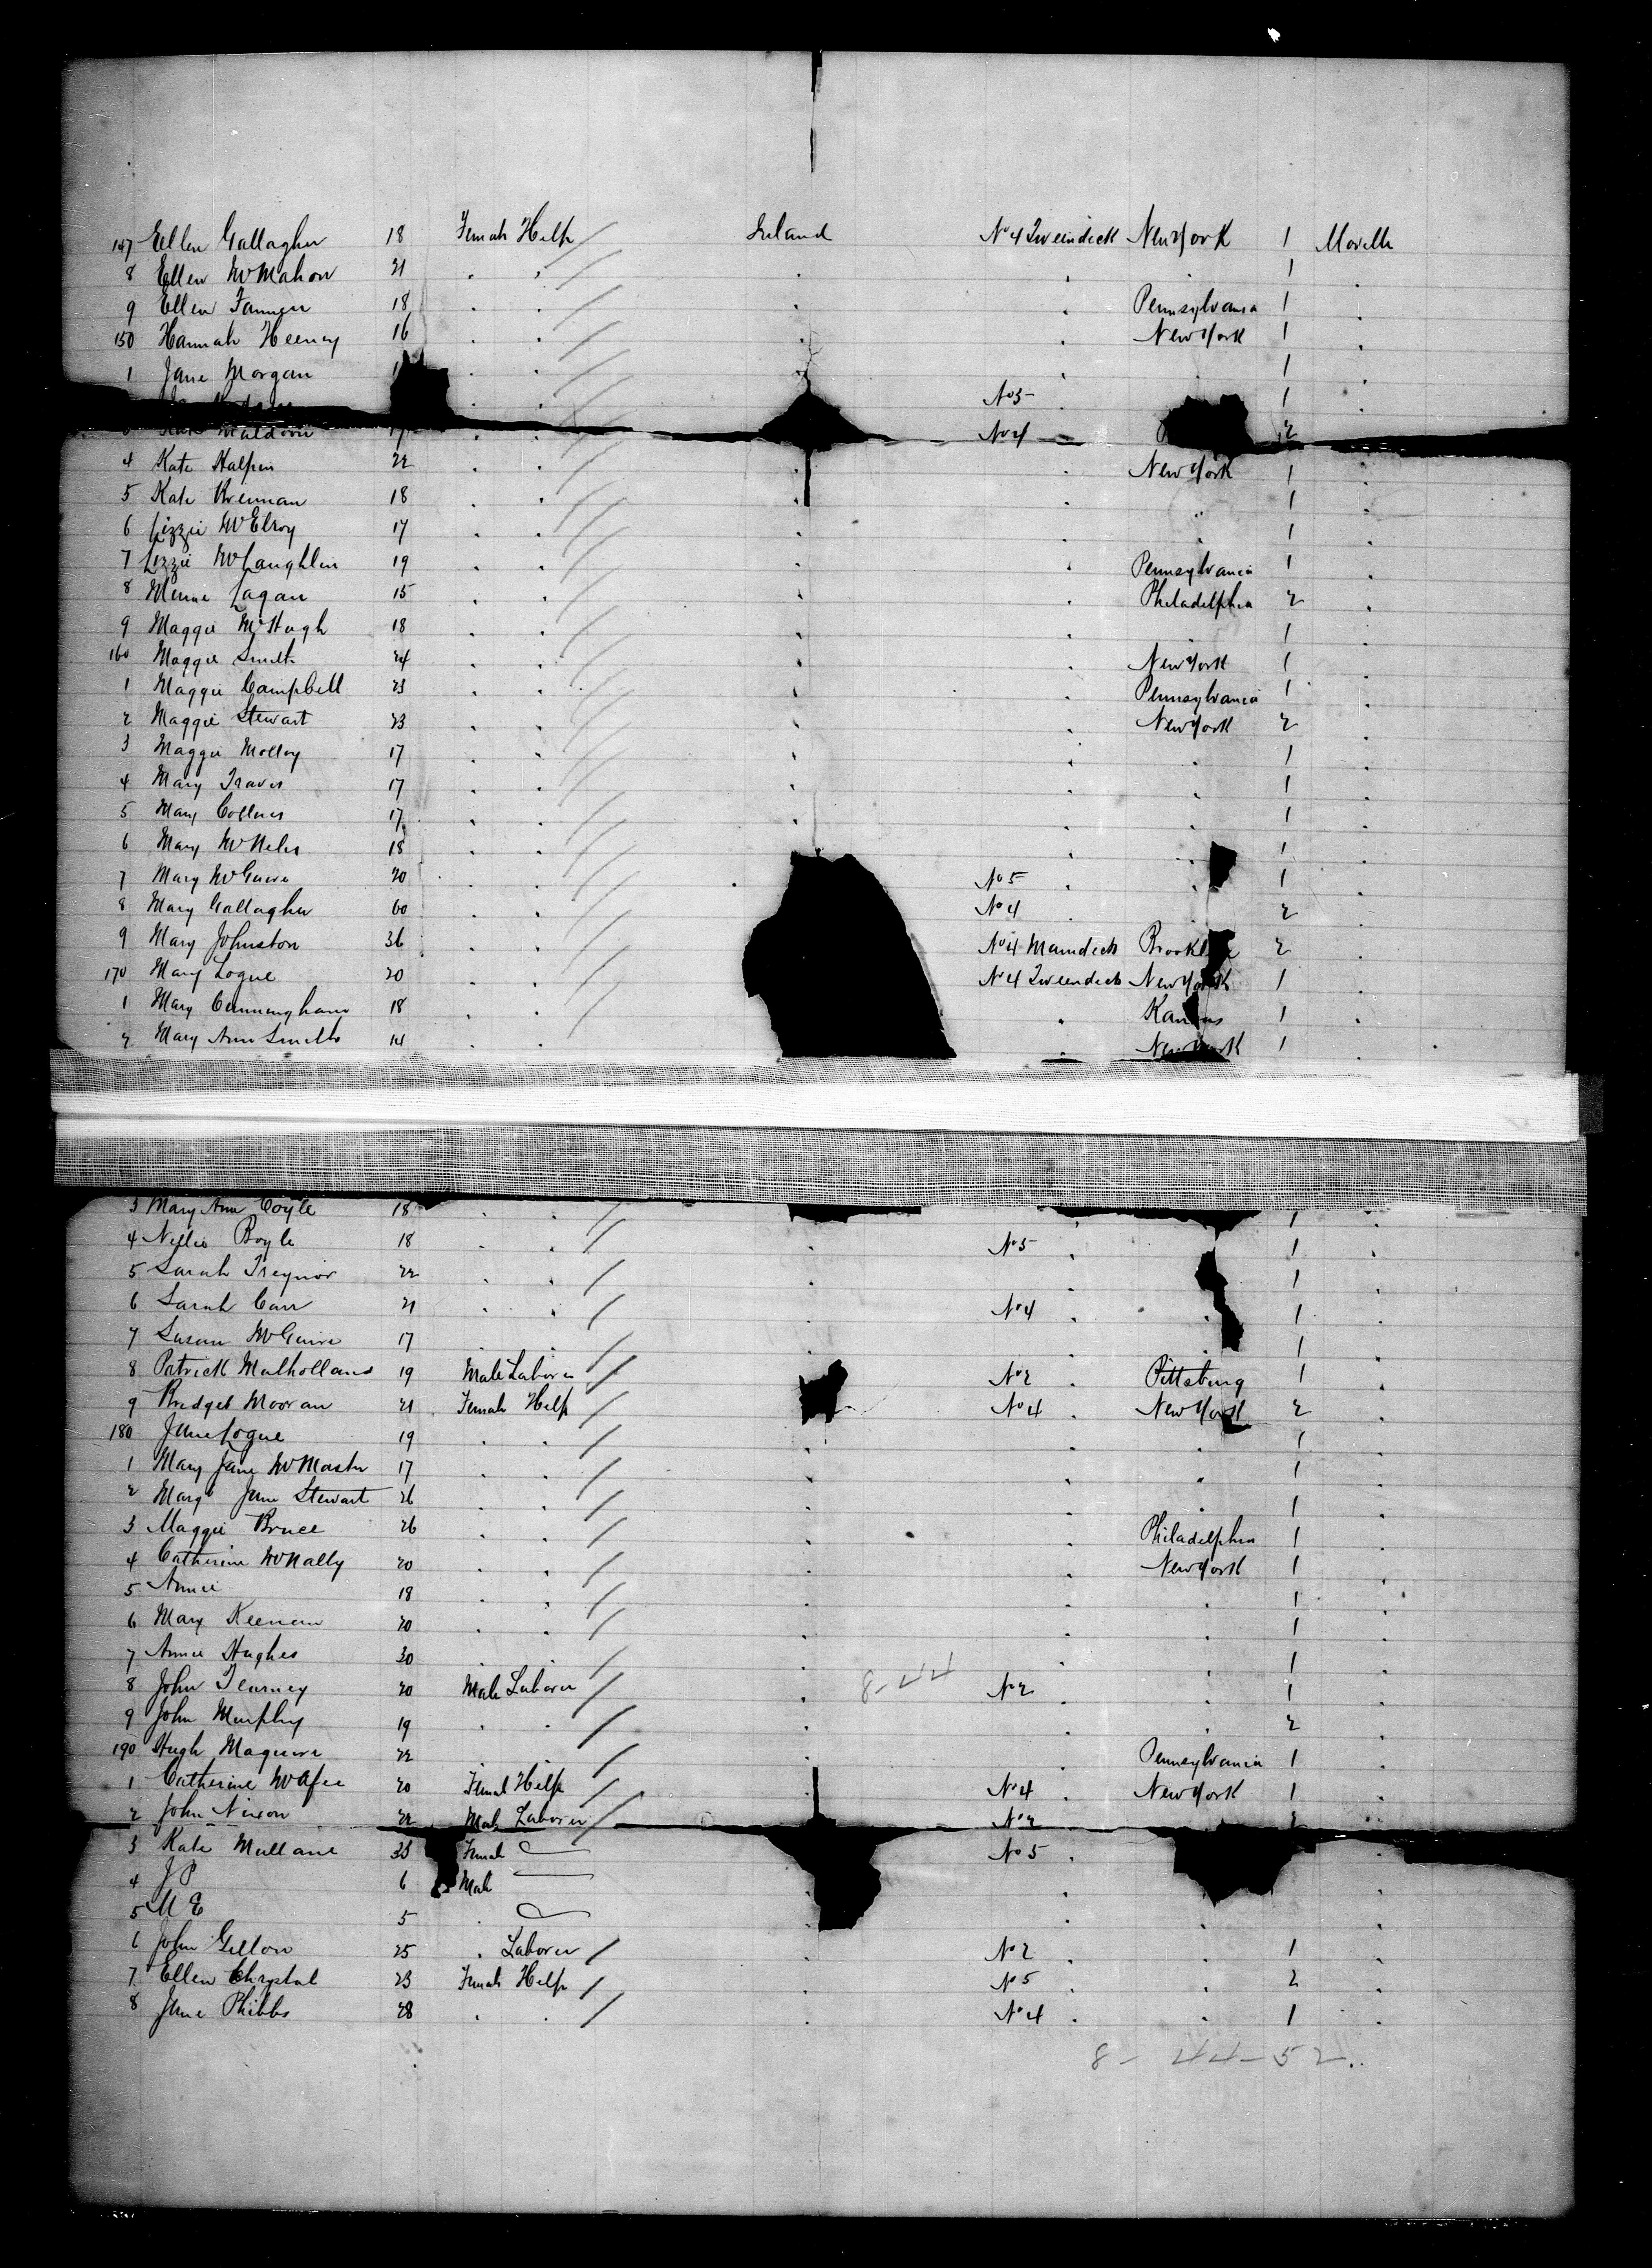 147 Ellen Gallagher 18 Female Help / Ireland No 4 Tweendeck New York 1 Moville
8 Ellen McMahon 21 . . / . . . 1 .
9 Ellen 18 . . / . . Pennsylvania 1 .
150 Hannah Heeney 16 . . / . . New York 1 .
1 Jane Morgan . . / . . 1 .
. . No 5 . 1 .
Waldron 17 . . No 4 . 2 .
4 Kate Halpin 22 . . / . . New York 1 .
5 Kate Brennan 18 . . / . . . 1 .
6 Lizzie McElroy 17 . . / . . . 1 .
7 Lizzie McLaughlin 19 . . / . . Pennsylvania 1 .
8 Minnie Lagan 15 . . / . . Philadelphia 2 .
9 Maggie McHugh 18 . . / . . . 1 .
160 Maggie Smith 24 . . / . . New York 1 .
1 Maggie Campbell 23 . . / . . Pennsylvania 1 .
2 Maggie Stewart 23 . . / . . New York 2 .
3 Maggie Molloy 17 . . / . . . 1 .
4 Mary Travis 17 . . / . . . 1 .
5 Mary Collins 17 . . / . . . 1 .
6 Mary 18 . . / . . 1 .
7 Mary McGuire 20 . . / No 5 . . 1 .
8 Mary Gallagher 60 . . / No 4 . 2 .
9 Mary Johnston 36 . . / No 4 Maindeck Brooklyn 2 .
170 Mary Logue 20 . . / No 4 Tweendeck New York 1 .
1 Mary Cunningham 18 . . / . Kansas 1 .
2 Mary Ann Smith 14 . . . New York 1 .
3 Mary Ann Coyle 18 . . / . 1 .
4 Nellie Boyle 18 . . / . No 5 . 1 .
5 Sarah Treynor 22 . . / . . 1 .
6 Sarah Carr 21 . . / . No 4 . . 1 .
7 Susan McGuire 17 . . / . . 1 .
8 Patrick Mulholland 19 Male Laborer / No 2 . Pittsburg 1 .
9 Bridget Mooran 21 Female Help / No 4 . New York 2 .
180 Jane Logue 19 . . / . . . 1 .
1 Mary Jane McMaster 17 . . / . . . 1 .
2 Margt Jane Stewart 26 . . / . . . 1 .
3 Maggie Bruce 26 . . / . . Philadelphia 1 .
4 Catherine McNally 20 . . / . . New York 1 .
5 Annie 18 . . / . . . 1 .
6 Mary Keenan 20 . . / . . . 1 .
7 Annie Hughes 30 . . / . . . 1 .
8 John Tearney 20 Male Laborer / . 8-44 No 2 . . 1 .
9 John Murphy 19 . . / . . . 2 .
190 Hugh Maguire 22 . . / . . Pennsylvania 1 .
1 Catherine McAfee 20 Female Help / . No 4 . New York 1 .
2 John Nixon 22 Male Laborer / No 2 2
3 Kate Mullane 33 Female — No 5 . .
4 J P 6 Male — . .
5 M E 5 . — . . .
6 John Gillon 25 . Laborer / . No 2 . . 1 .
7 Ellen Chrystal 23 Female Help / . No 5 . . 2 .
8 Jane Phibbs 28 . . / . No 4 . . 1 .
8 - 44 - 52.